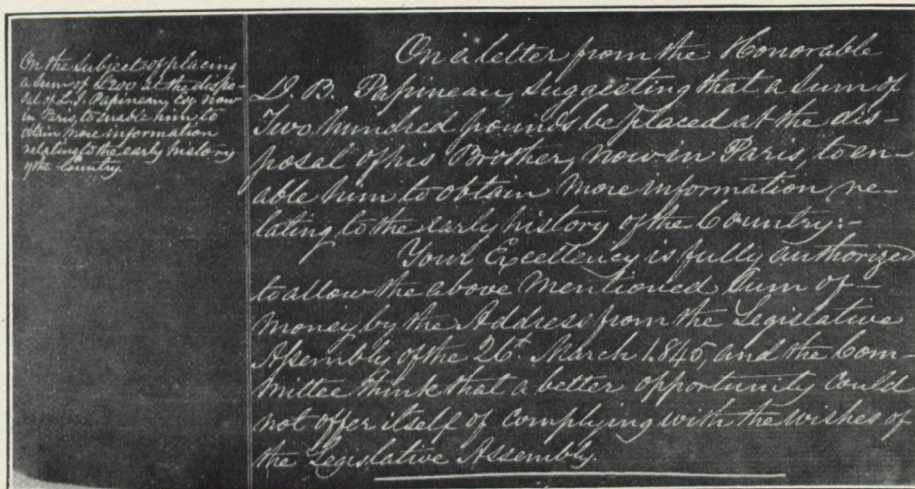 On the Subject of placing
a Sum of £200 at the dispo-
sal of L. J. Papineau, Esq now
in Paris, to enable him to
obtain more information
relating to the early history
of the Country.
On a letter from the Honorable
D. B. Papineau, Suggesting that a Sum of
Two hundred pounds be placed at the dis-
posal of his Brother, now in Paris to en-
able him to obtain more information re-
lating to the early history of the Country:-
Your Excellency is fully authorized
to allow the above Mentioned Sum of
Money by the Address from the Legislative
Assembly of the 26th March 1845, and the Com-
mittee think that a better opportunity could
not offer itself of complying with the wishes of
the Legislative Assembly.